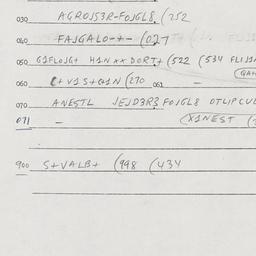 030 AGROJS3R-FOJGL8 (252
040 FAJGALO-+- (027
050 G1FLOJG+ H1N×× DORT+ (522 (534 FLIJ1
060 C+V1S+G1N (270 061 –
070 ANESTL JEJD3R3 FOJGL8 OTLIPCUL
071 – (X1NEST (
900 S+VALB+ (998 (434